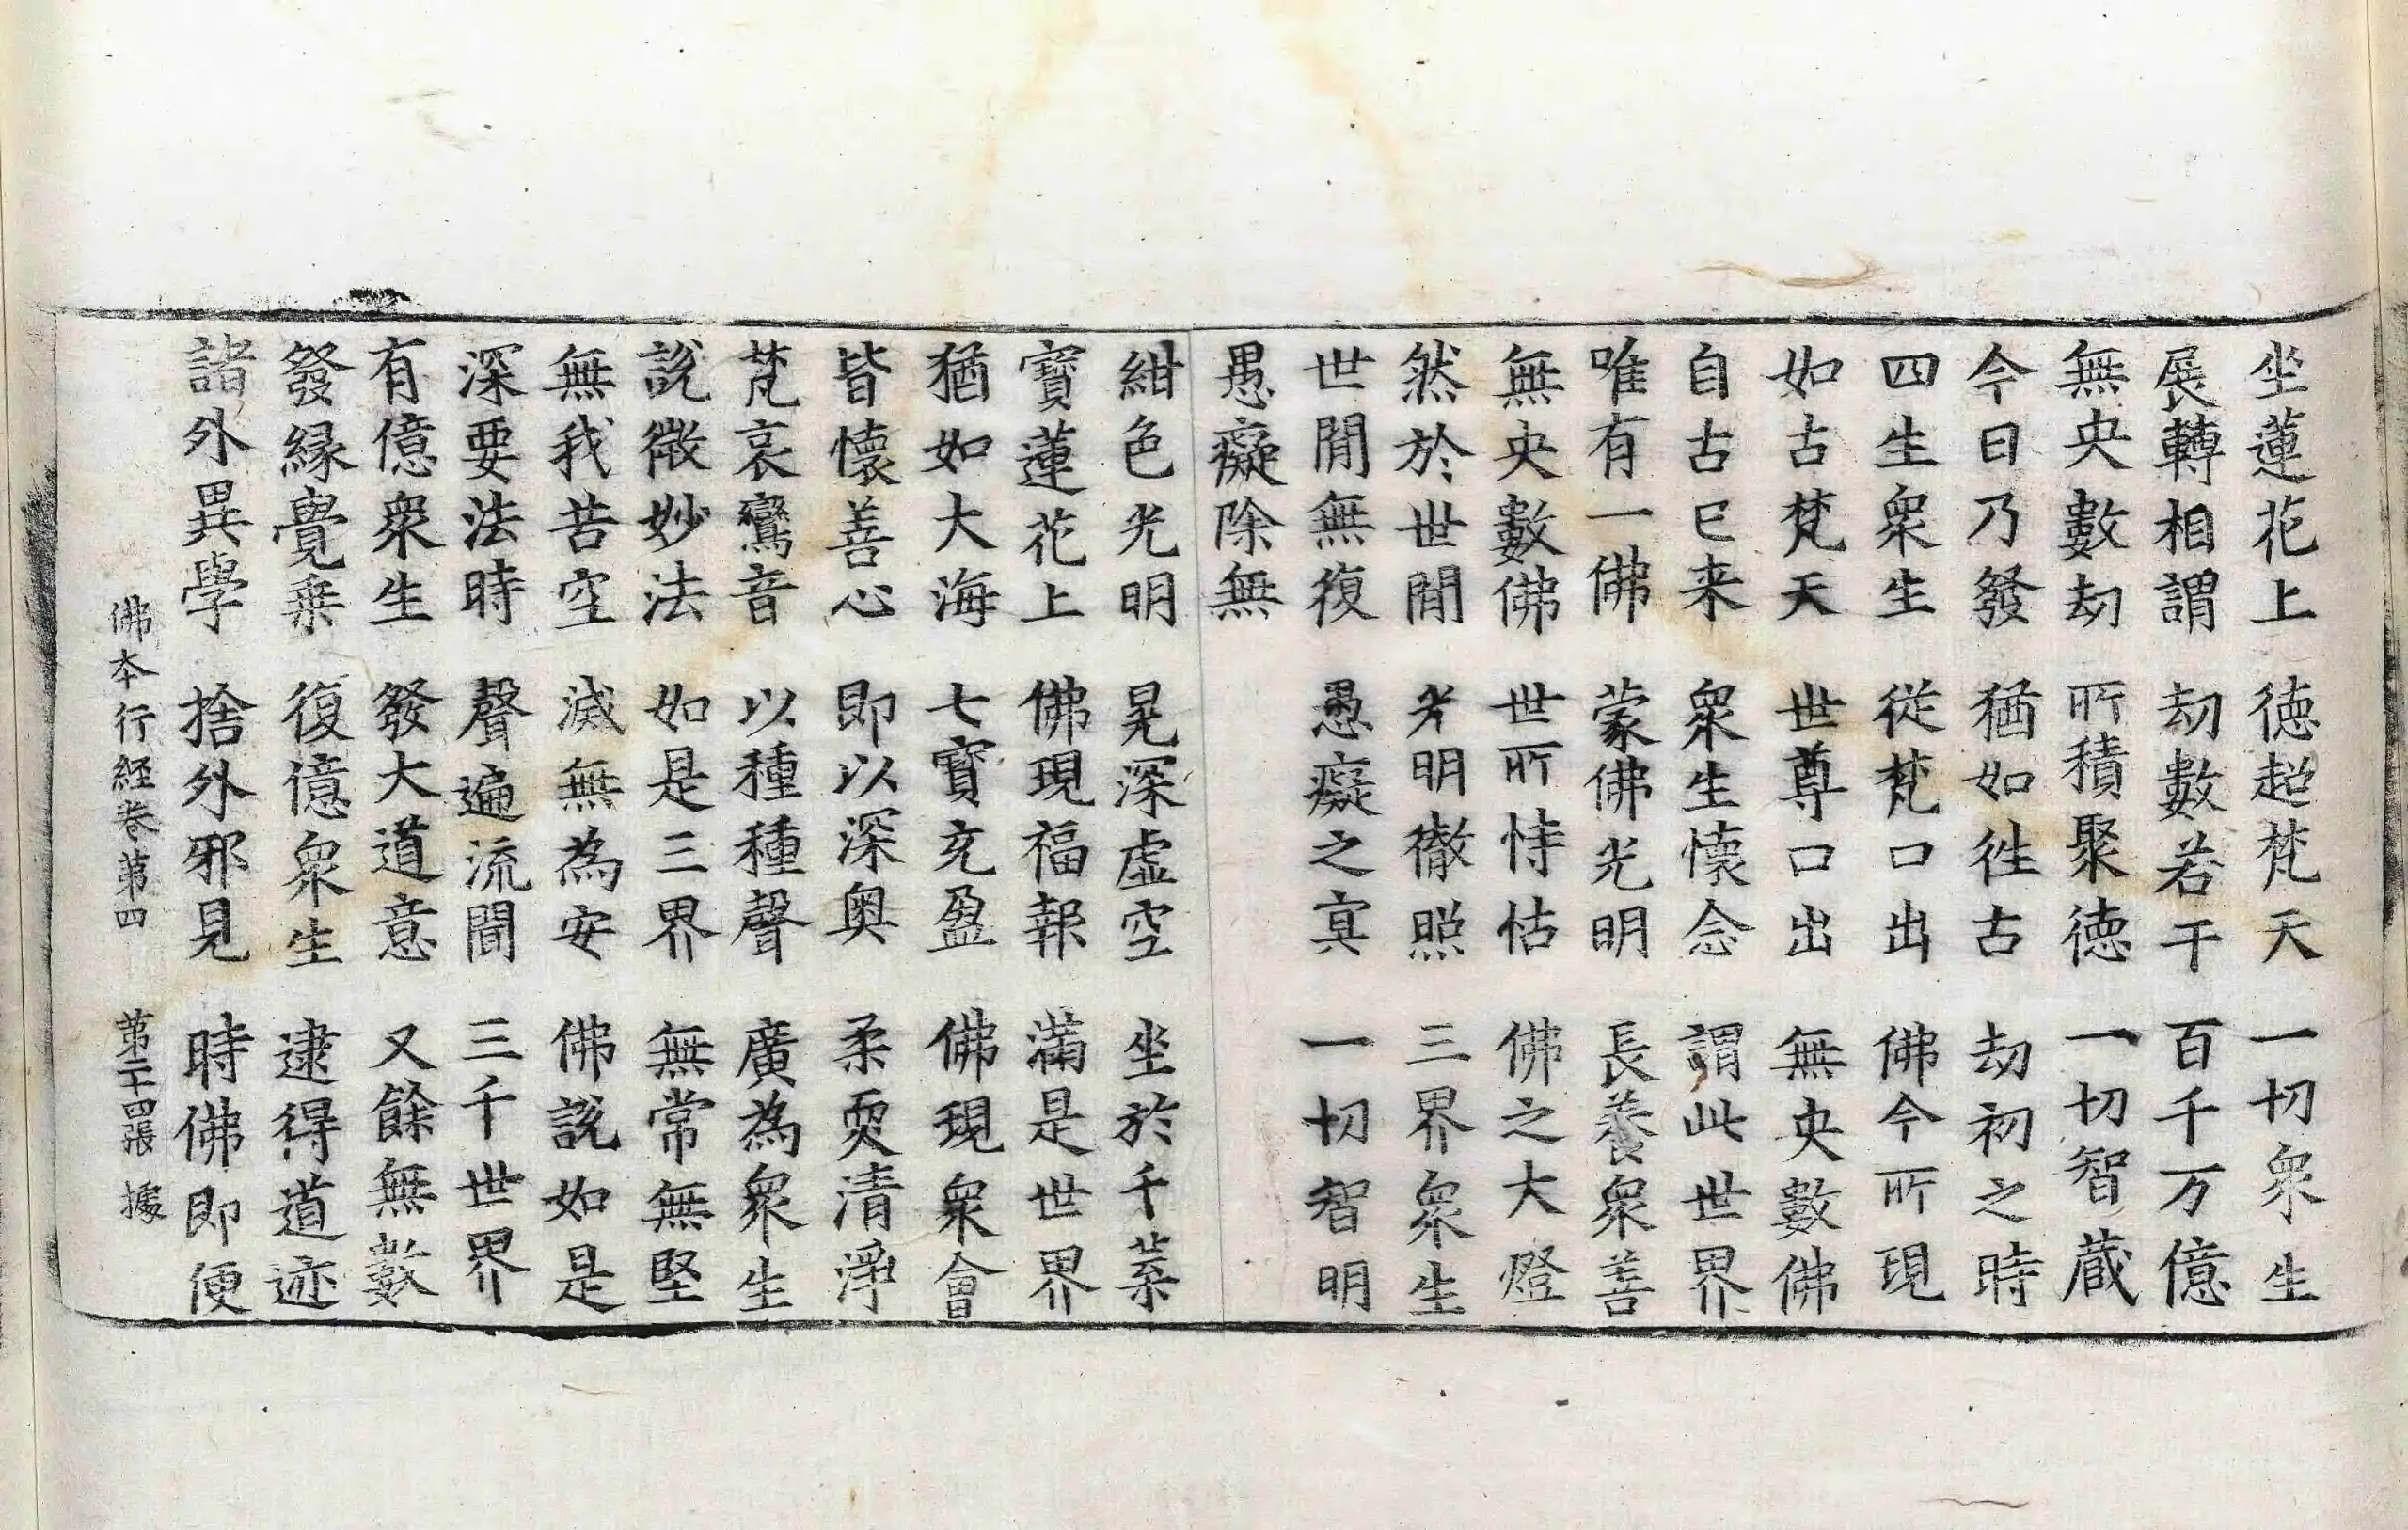 坐蓮花上　德超梵天　一切衆生
展轉相謂　劫數若干　百千万億
無央數劫　所積聚德　一切智蔵
今日乃發　猶如徃古　劫初之時
四生衆生　從梵口出　佛今所現
如古梵天　世尊口出　無央數佛
自古已来　衆生懷念　謂此世界
唯有一佛　蒙佛光明　長養衆善
無央數佛　世所恃怙　佛之大燈
然於世間　光明徹照　三界衆生
世間無復　愚癡之冥　一切智明
愚癡除無
紺色光明　晃深虛空　坐於千葉
寶蓮花上　佛現福報　滿是世界
猶如大海　七寶充盈　佛現衆會
皆懷善心　即以深奥　柔耎清淨
梵哀鸞音　以種種聲　廣為衆生
說微妙法　如是三界　無常無堅
無我苦空　滅無為安　佛說如是
深要法時　聲遍流聞　三千世界
有億衆生　發大道意　又餘無數
發縁覺乗　復億衆生　逮得道迹
諸外異學　捨外邪見　時佛即便
佛本行経卷第四　第二十四張　據